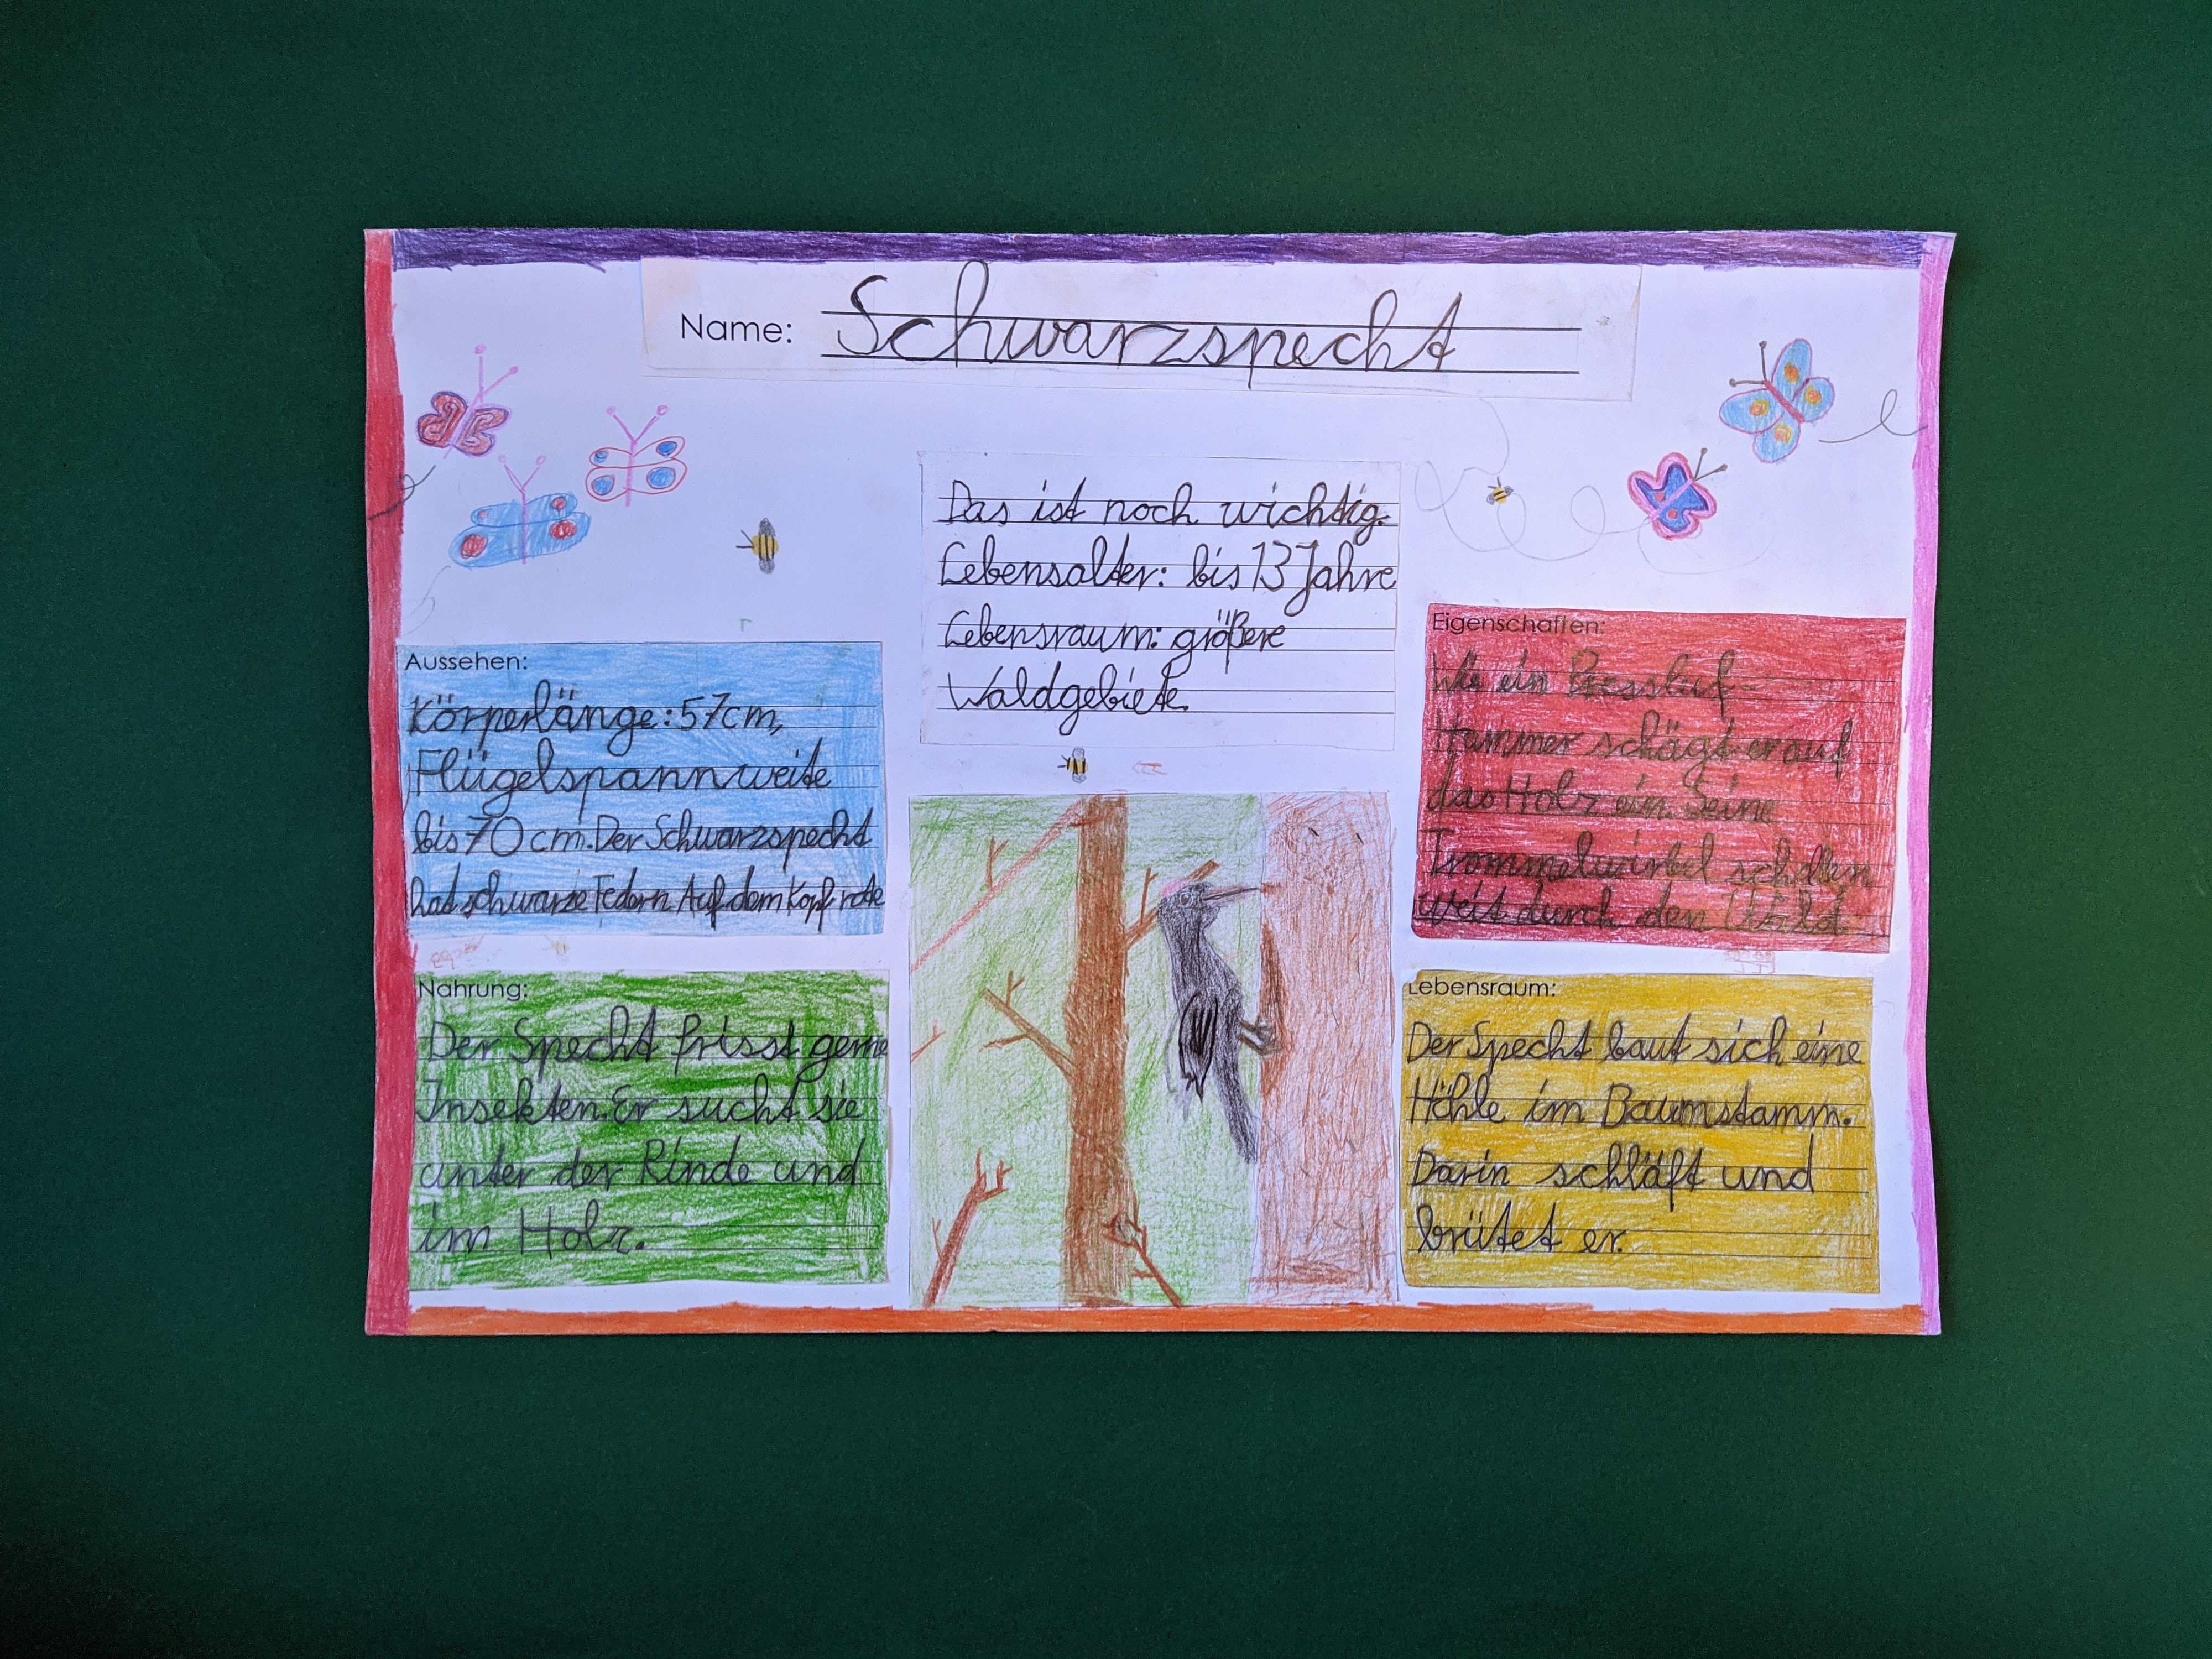 Name: Schwarzspecht
Das ist noch wichtig.
Lebensalter: bis 13 Jahre
Lebensraum: größere
Waldgebiete.
Aussehen:
Körperlänge: 57cm,
Flügelspannweite
bis 70 cm. Der Schwarzspecht
hat schwarze Federn. Auf dem Kopf rote
Nahrung:
Der Specht frisst gerne
Insekten. Er sucht sie
unter der Rinde und
im Holz.
Eigenschaften:
Wie ein Pressluf-
Hammer schägt er auf
das Holz ein. Seine
Trommelwirbel schallen
weit durch den Wald.
Lebensraum:
Der Specht baut sich eine
Höhle im Baumstamm.
Darin schläft und
brütet er.